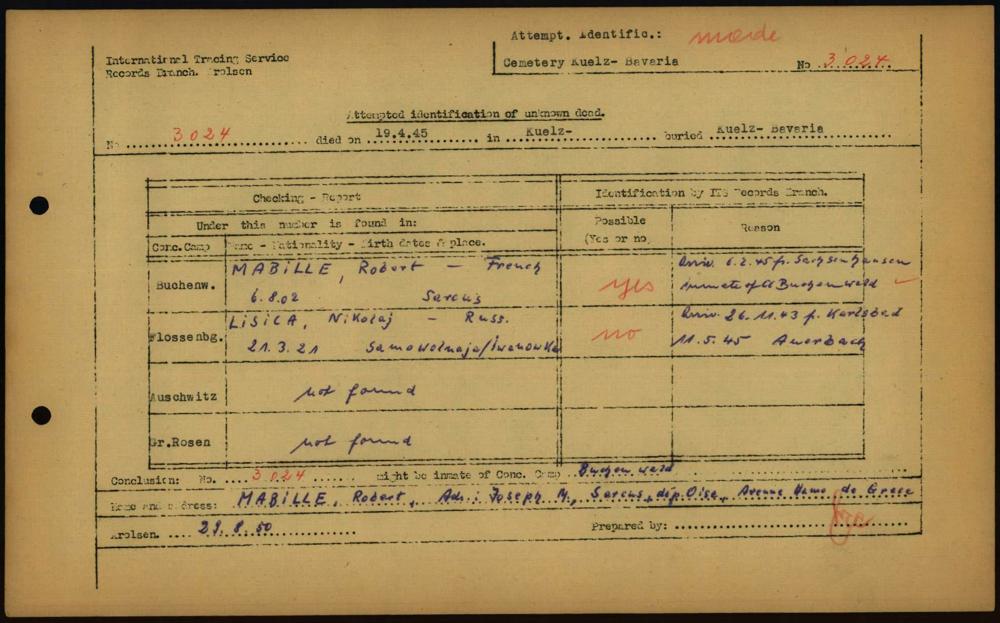 Attempt. Identific.: made
International Tracing Service
Records Branch. Arolsen
Cemetery Kuelz- Bavaria No 3024
Attempted identification of unknown dead.
No 3024 died on 19.4.45 in Kuelz- buried Kuelz- Bavaria
Checking - Report
Identification by ITS Records Branch.
Under this number is found in:
Possible
(Yes or no)
Reason
Conc.Camp Name - Nationality - Birth dates & place.
Buchenw. MABILLE, Robert - French
6.8.02 Sarcus
yes
Arriv. 6.2.45 fr. Sachsenhausen
inmate of Cl Buchenwald
Flossenbg. LISICA, Nikolaj - Russ.
21.3.21 Samowolnaja/Iwanowka
no
Arriv. 26.11.43 f. Karlsbad
11.5.45 Auerbach
Auschwitz not found
Gr.Rosen not found
Conclusion: No. 3024 might be inmate of Conc. Camp Buchenwald
Name and address: MABILLE, Robert, Adr.: Joseph M., Sarcus, dép. Oise, Avenue Hame de Grace
Arolsen. 29.8.50 Prepared by: